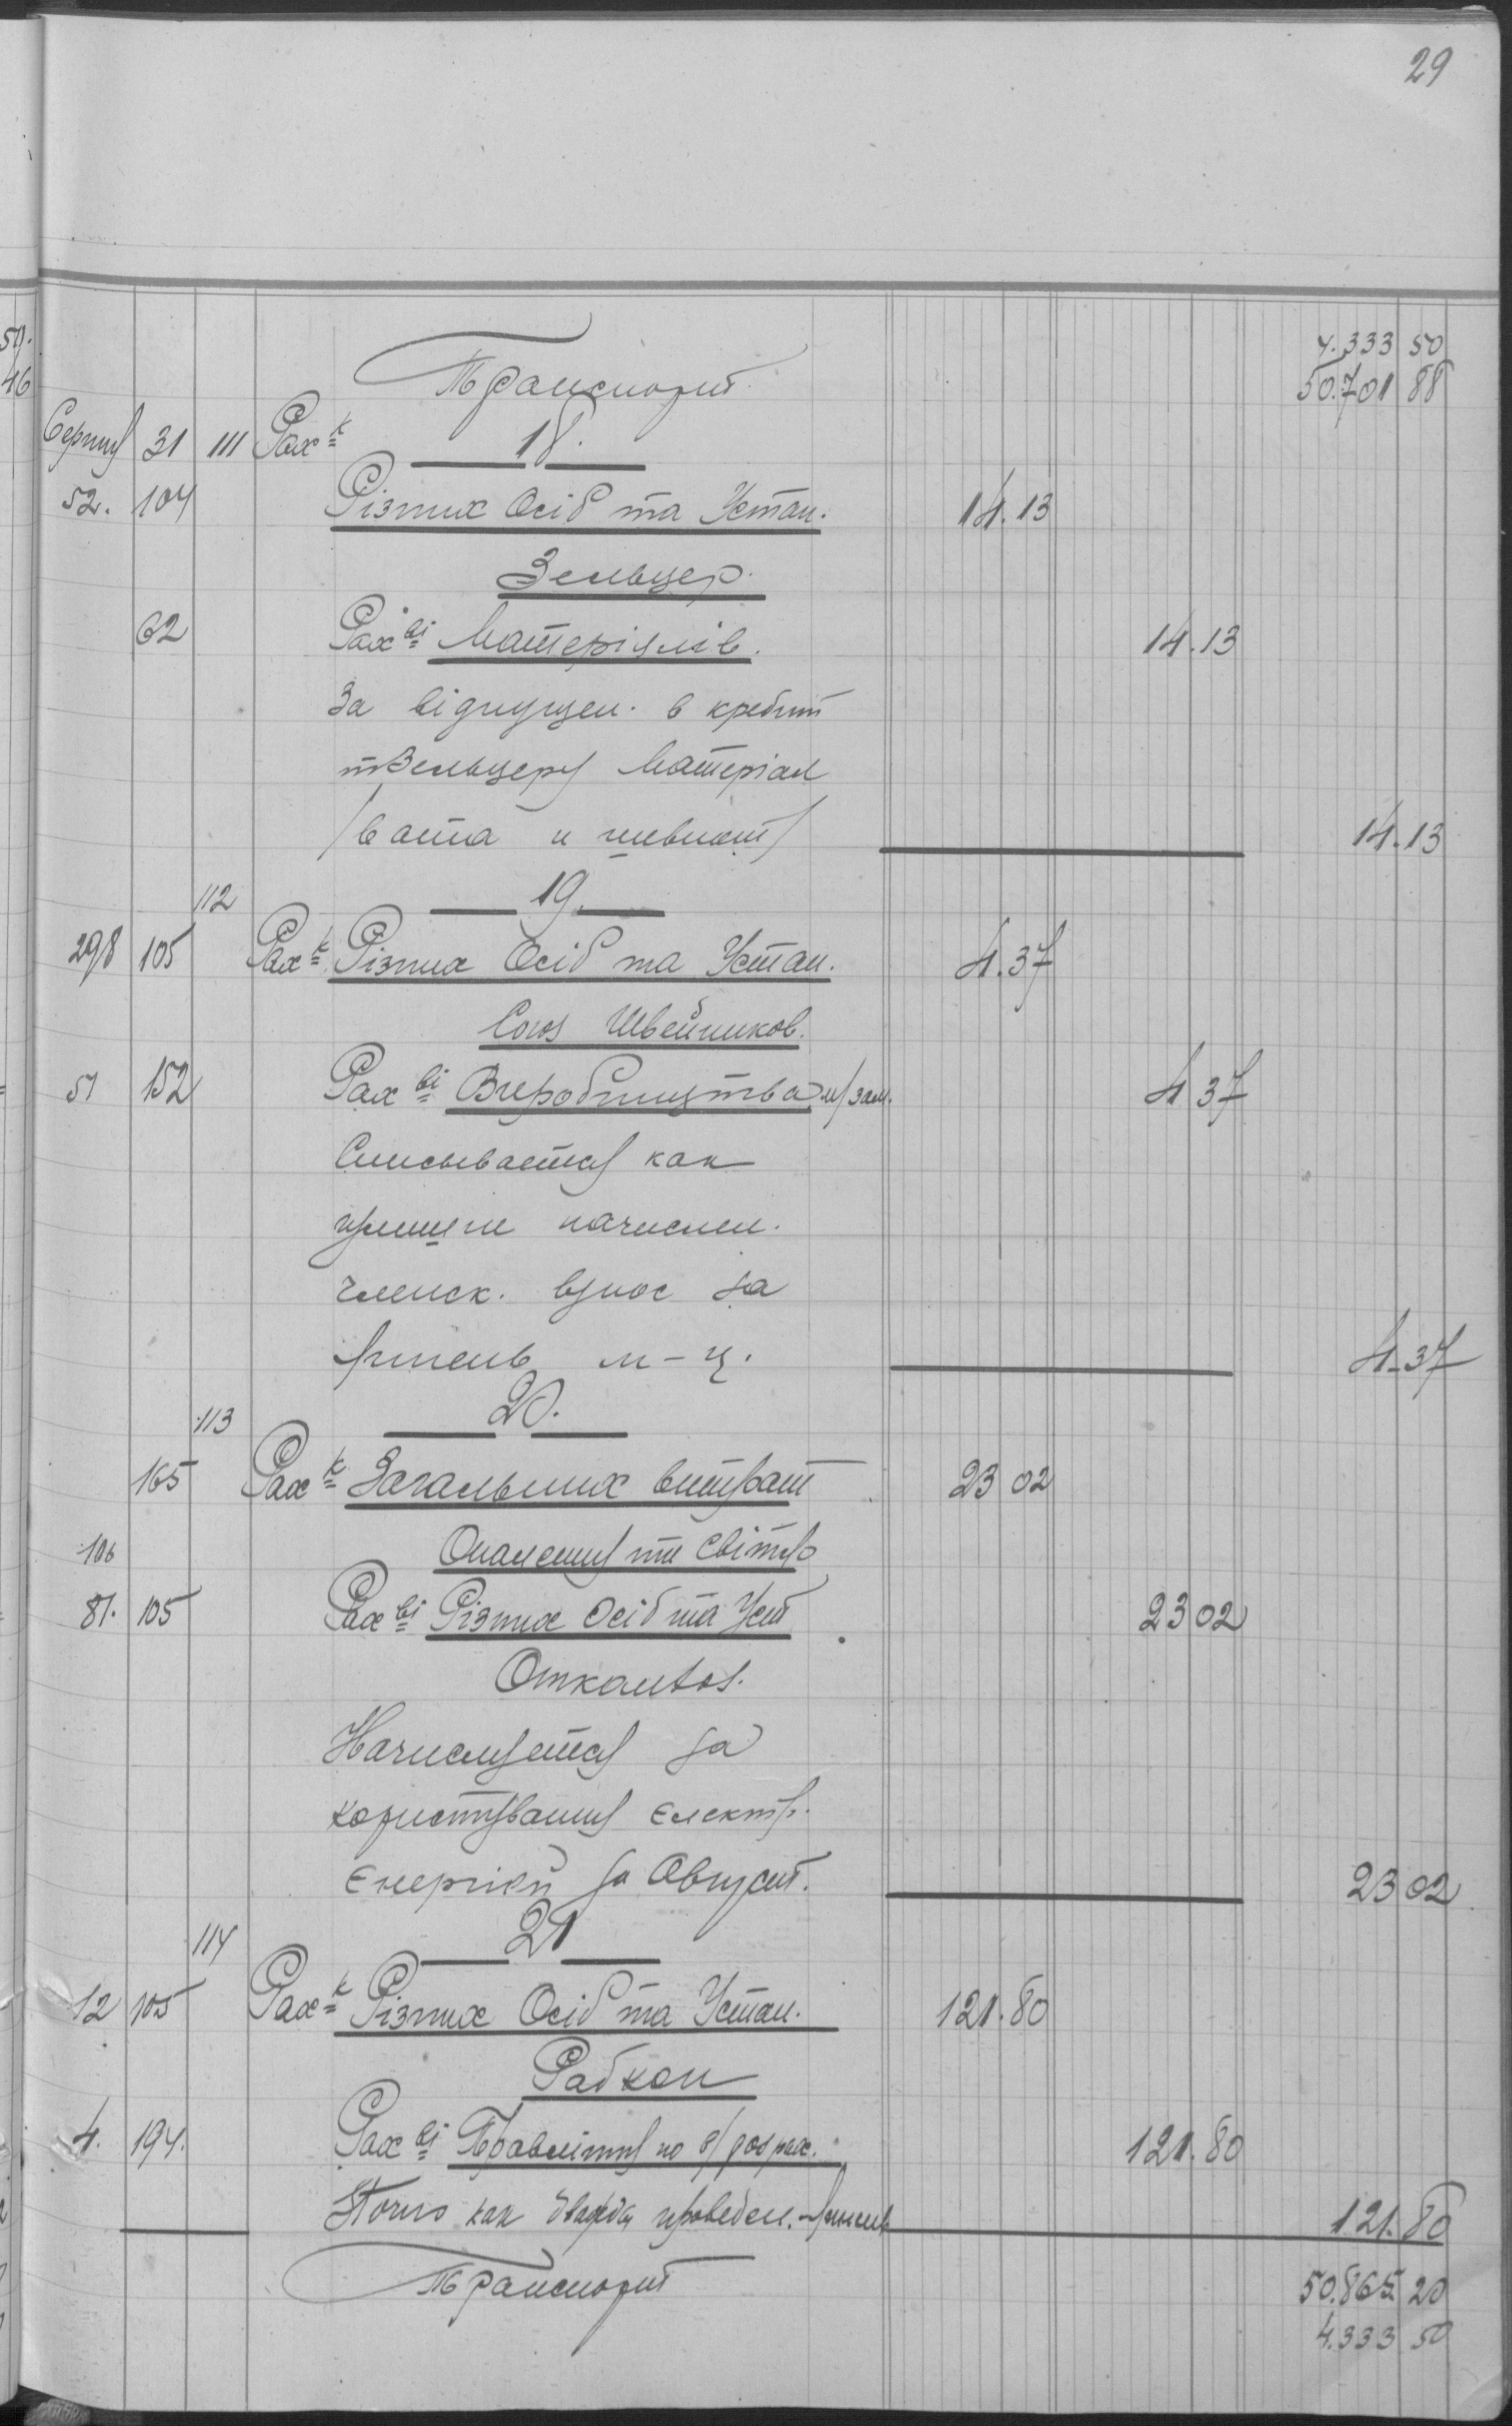 29
4.333 50
Транспорт 50.701 88
Серпня 31 111 Рах-к 18.
52. 104 Різних Осіб та Устан. 14.13
Зельцер.
62 Рах-ві Матеріялів. 14.13
За відпущен. в кредит
т Зельцеру Матеріал
/вата и 14.13
112 19.
298 105 Рах-к Різних Осіб та Устан. 4.37
Союз Швейников.
51 152 Рах-ві Виробництва м/зам. 4 37
Списывается как
начислен.
членск. взнос за
Липень м-ц. 4-37
113 20.
165 Рах-к Загальних витрат 23 02
106 Опалення та Світло
81. 105 Рах-ві Різних Осіб та Уст 23 02
Откомхоз.
Начисляется за
користування електр.
Енергией за Август. 23 02
114 21
12 105 Рах-к Різних Осіб та Устан. 121.80
Рабкоп
4. 194. Рах-ві Правління по 121.80
Сторно как дважды проведен. Липень 121.80
Транспорт 50.865 20
4.333 50